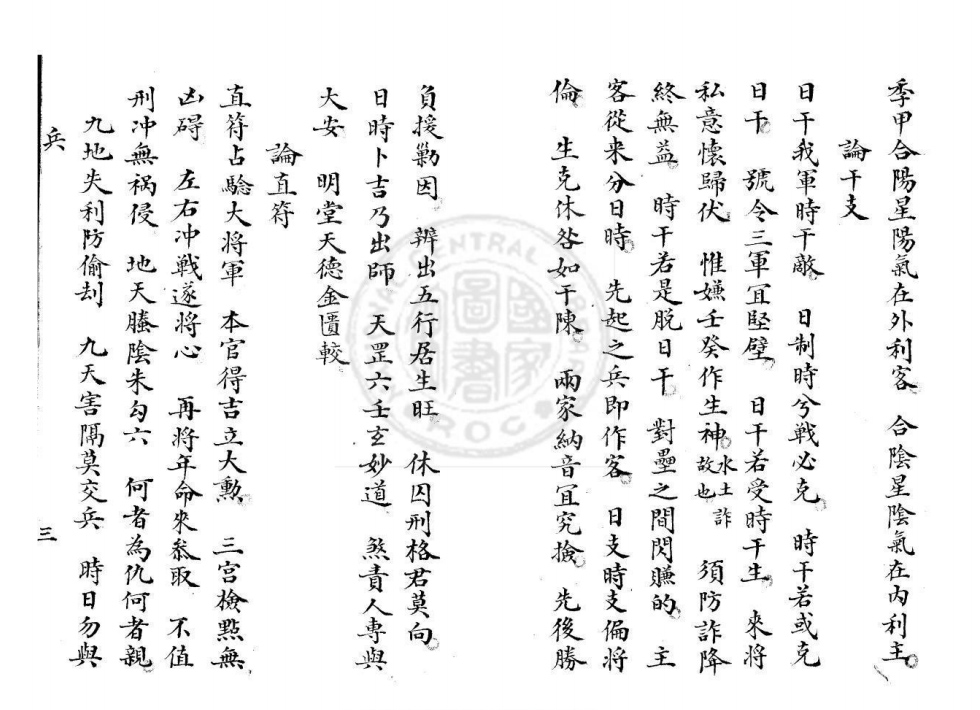 季甲合陽星陽氣在外利客　合陰星陰氣在內利主
論干支
日干我軍時干敵　日制時兮戰必克　時干若或克
日干　號令三軍宜堅壁　日干若受時干生　來將
私意懷歸伏　惟嫌壬癸作生神水土詐故也　須防詐降
終無益　時干若是脫日干　對壘之間閃賺的　主
客從來分日時　先起之兵即作客　日支時支偏將
倫　生克休咎如干陳　兩家納音宜究撿　先後勝
負援勦因　辨出五行居生旺　休囚刑格君莫向
日時卜吉乃出師　天罡六壬玄妙道　煞責人專與
大安　明堂天德金匱較
論直符
直符占驗大將軍　本官得吉立大勲　三宮檢點無
凶碍　左右冲戰遂將心　再將年命來叅取　不值
刑冲無禍侵　地天螣陰朱勾六　何者為仇何者親
九地失利防偷刦　九天害隔莫交兵　時日勿與
兵
三
NATIONAL CENTRAL LIBRARY
R.O.C.
國家圖書館